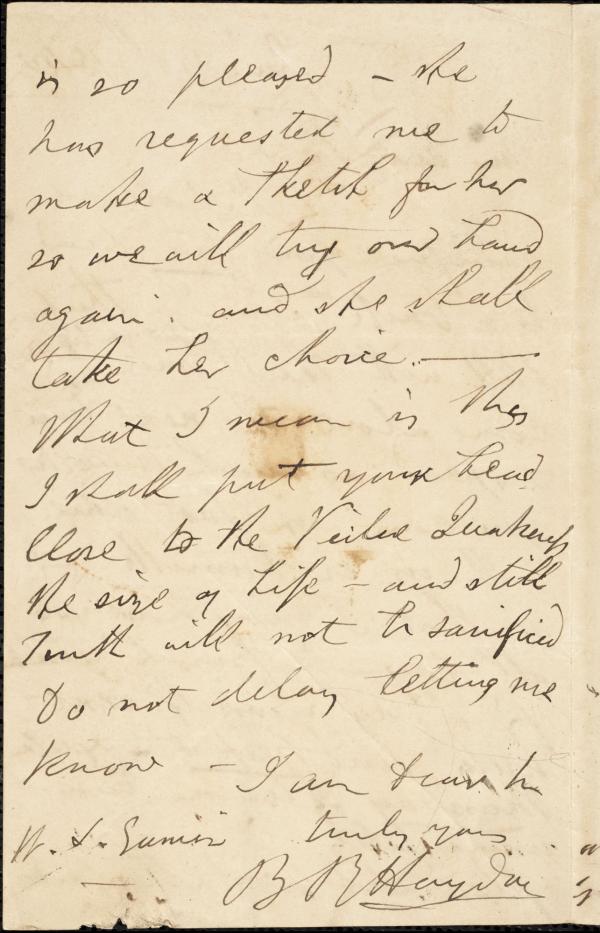 is so pleased – she
has requested me to
make a Sketch for her
so we will try our hand
again. and she shall
take her choice. —
What I mean is this
I shall put your head
Close to the Veiled Quakeress
the size of life – and still
Truth will not be sacrificed
Do not delay letting me
know – I am Dear Sir
W. L. Garrison truly yours
B R Haydon